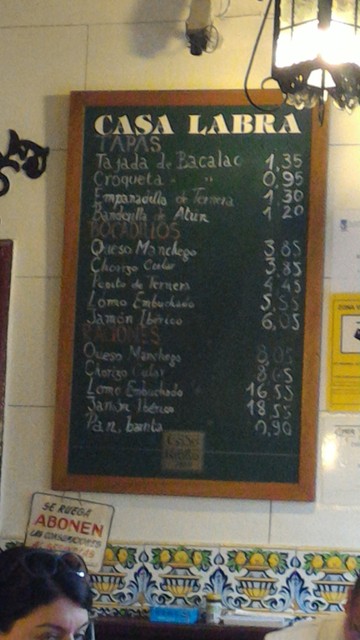 CASA LABRA
TAPAS
Tajada de Bacalao 1,35
Croqueta " " 0,95
Empanadilla de Ternera 1,30
Banderilla de Atún 1,20
BOCADILLOS
Queso Manchego 3,85
Chorizo Cular 3,85
Pepito de Ternera 4,45
Lomo Embuchado 5,55
Jamón Ibérico 6,05
RACIONES
Queso Manchego 8,05
Chorizo Cular
Lomo Embuchado 16,55
Jamón Ibérico 18,55
Pan, barrita 0,90
CASA
LABRA
SE RUEGA
ABONEN
LAS CONSUMICIONES
ZONA